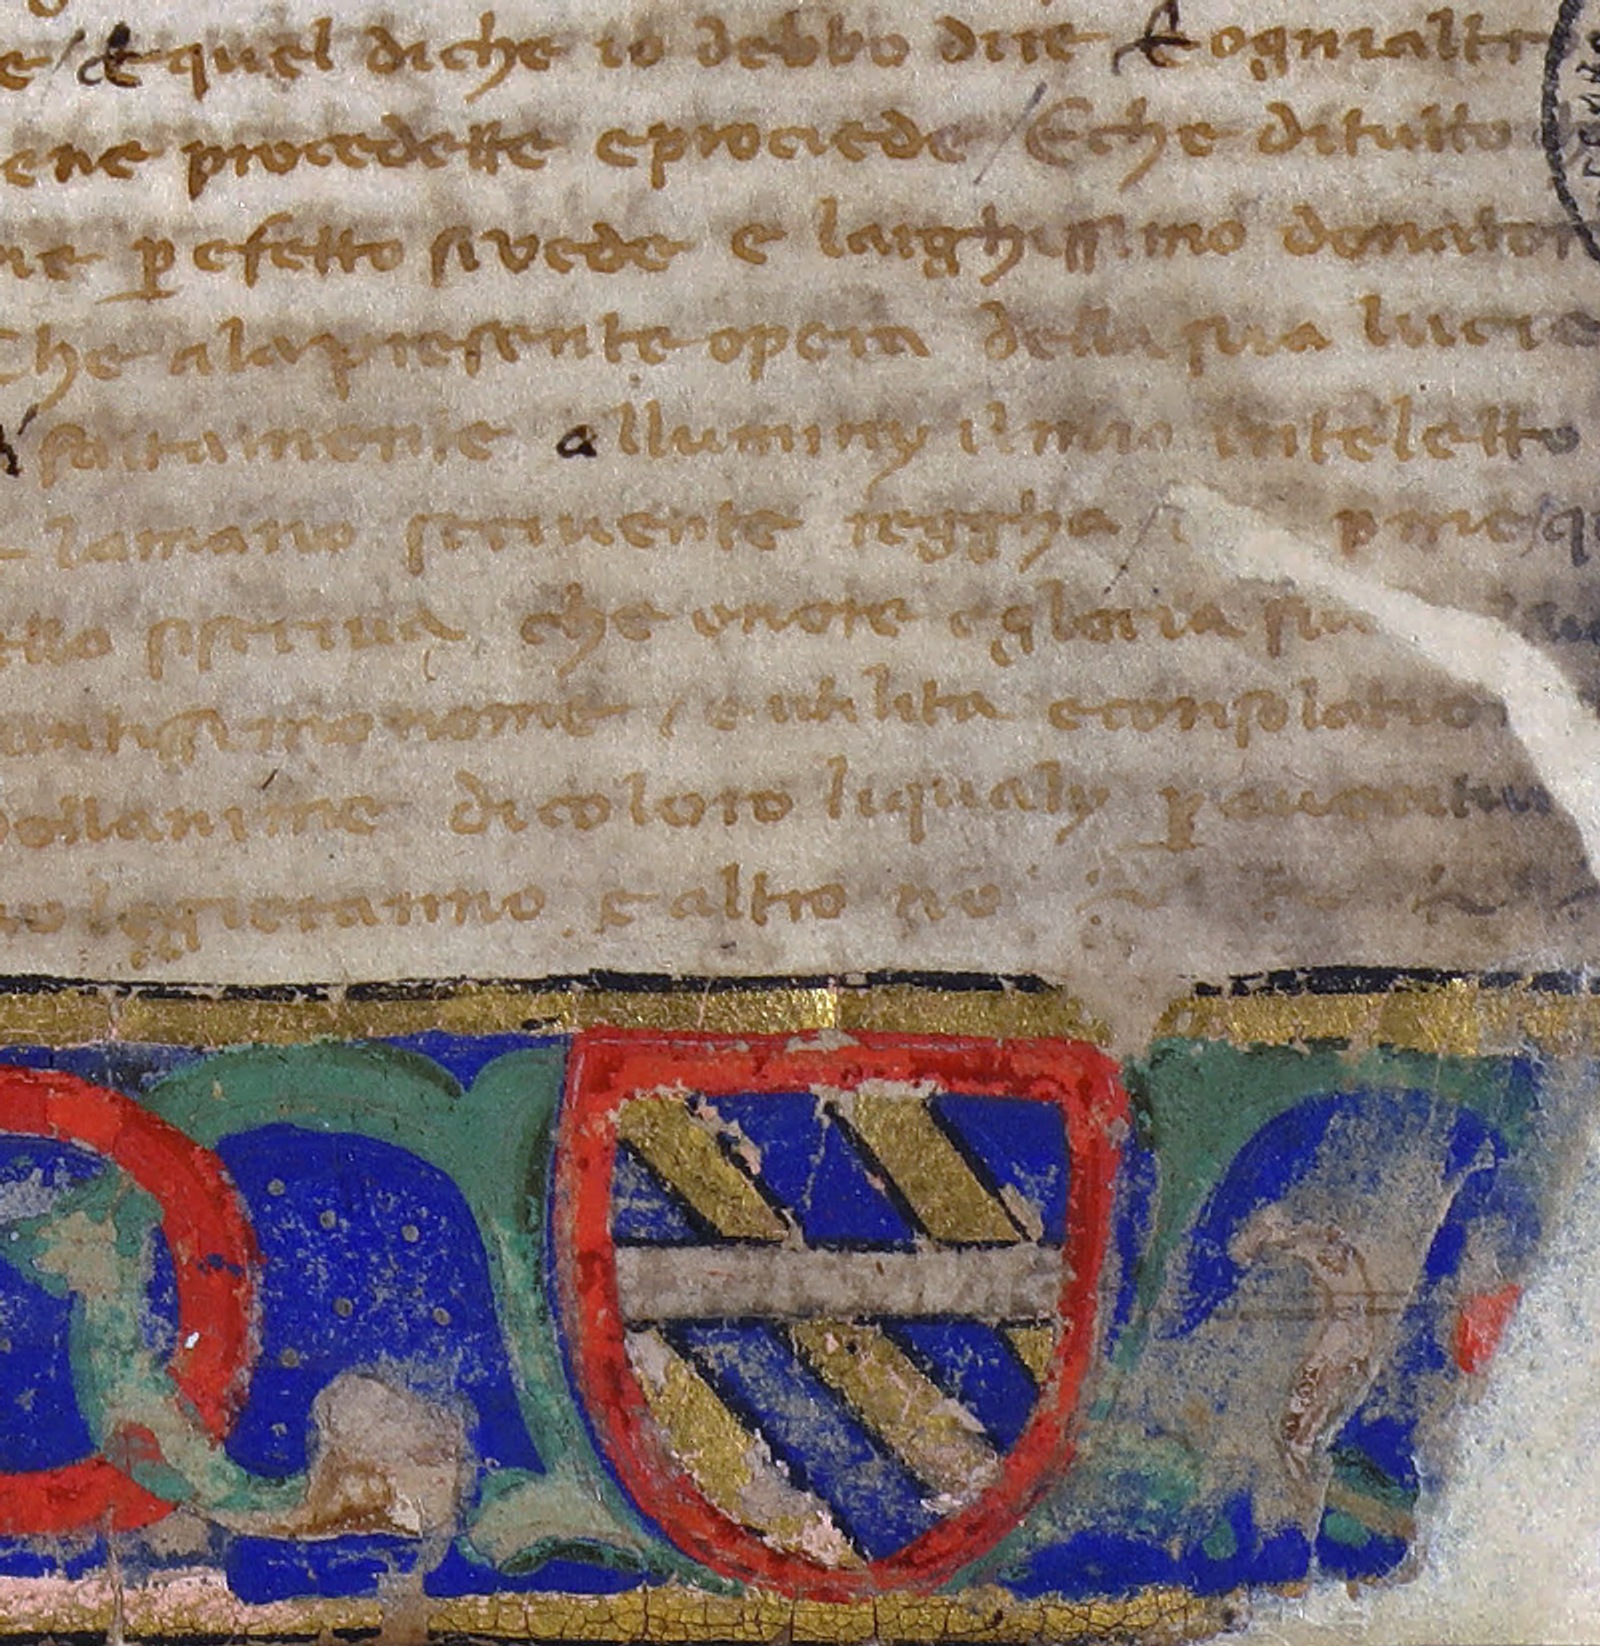 e / & quel di che io debbo dire E ogni altr
ene procedette e prociede / E che di tutto
me p efetto si vede e larghissimo donator
Che a la presente opera della sua lucie
santamente allumini il mio inteletto
lamano scrivente reggha / p me / q
ello si scriva che onore e gloria sua
santissimo nome / e utilita e consolatio
dellanime di coloro li qualy p
leggieranno e altro no